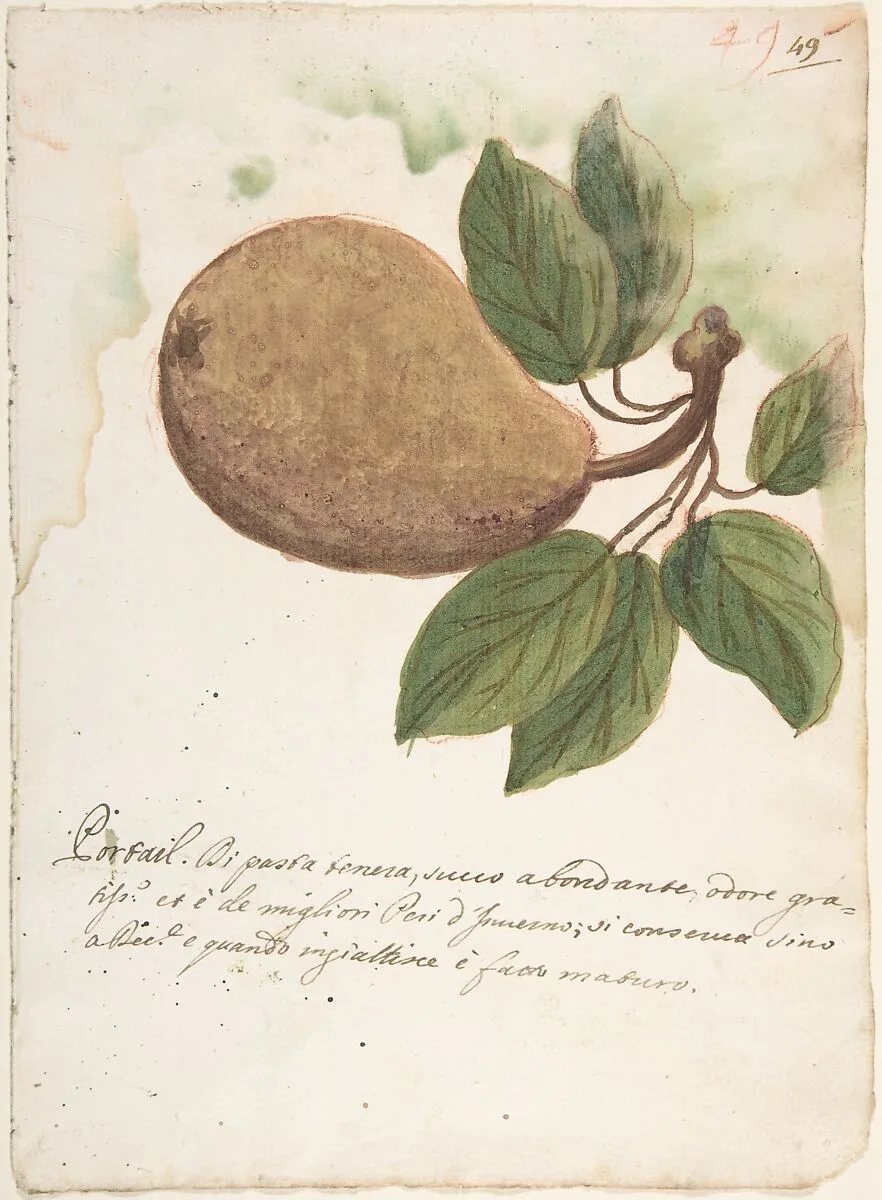 49 49
Portail. Di pasta tenera, succo abondante, odore gra=
tiss.º et è de migliori Peri d'Inuerno; si conserua sino
a Dec.e e quando ingiallisce è fatto maturo.